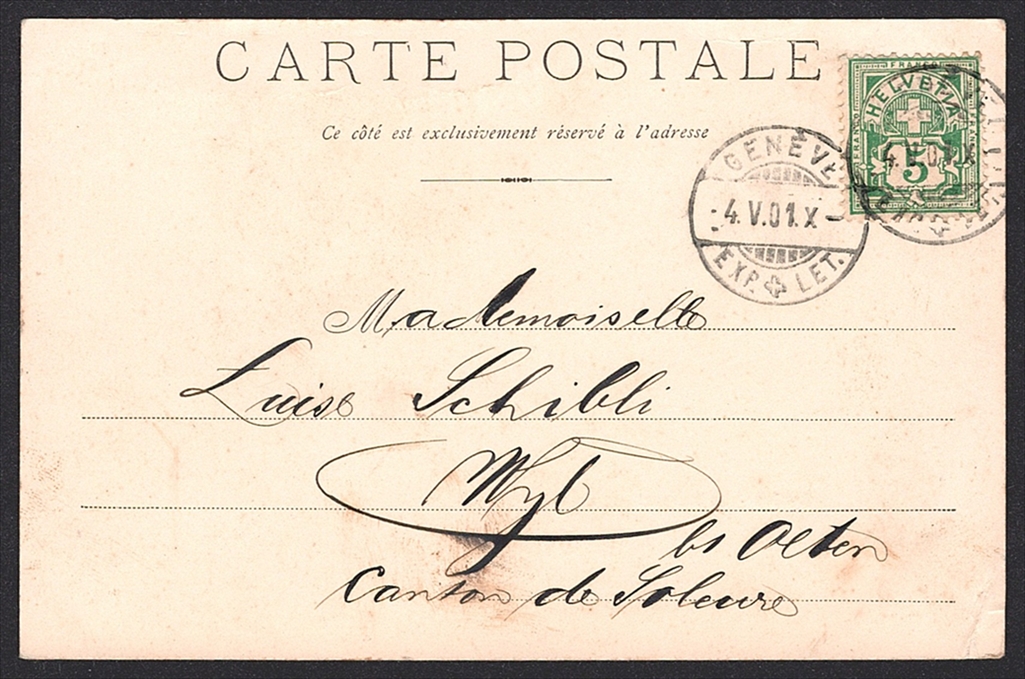 CARTE POSTALE
Ce côté est exclusivement réservé à l'adresse
FRANCO
HELVETIA
FRANCO
5
GENÈVE
4.V.01.X–
EXP. LET.
4.V.01.X
Mademoiselle
Luise Schibli
Wyl
bs Olten
Canton de Soleure